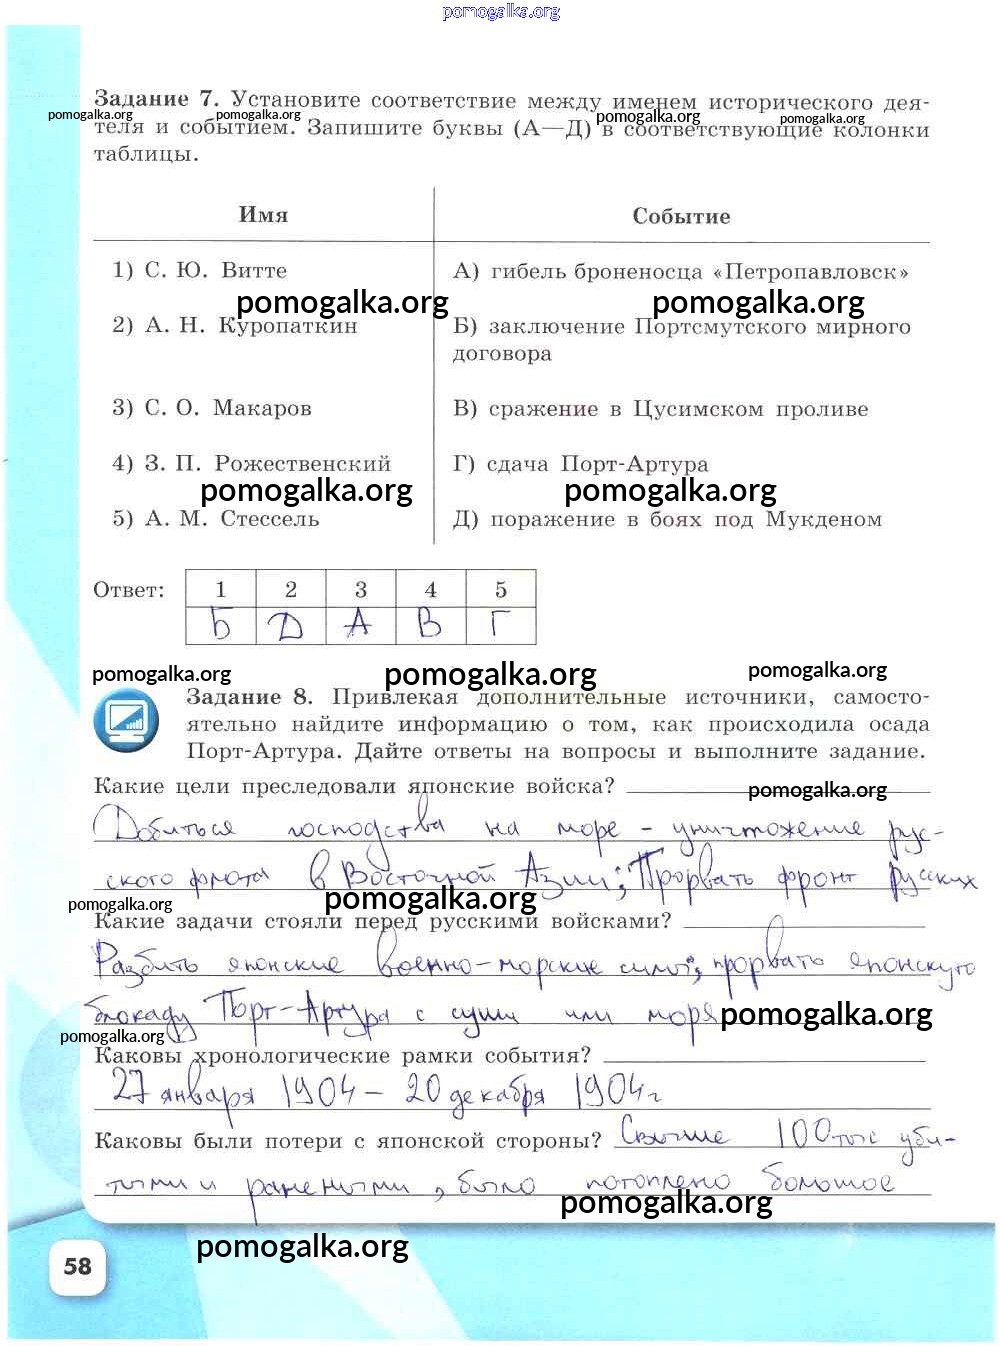 pomogalka.org
Задание 7. Установите соответствие между именем исторического дея-
pomogalka.org pomogalka.org pomogalka.org pomogalka.org
теля и событием. Запишите буквы (А—Д) в соответствующие колонки
таблицы.
Имя Событие
1) С. Ю. Витте А) гибель броненосца «Петропавловск»
pomogalka.org pomogalka.org
2) А. Н. Куропаткин Б) заключение Портсмутского мирного
договора
3) С. О. Макаров В) сражение в Цусимском проливе
4) З. П. Рожественский Г) сдача Порт-Артура
pomogalka.org pomogalka.org
5) А. М. Стессель Д) поражение в боях под Мукденом
Ответ: 1 2 3 4 5
Б Д А В Г
pomogalka.org pomogalka.org pomogalka.org
Задание 8. Привлекая дополнительные источники, самосто-
ятельно найдите информацию о том, как происходила осада
Порт-Артура. Дайте ответы на вопросы и выполните задание.
Какие цели преследовали японские войска?
pomogalka.org
Добиться господства на море - уничтожение рус-
ского флота в Восточной Азии; Прорвать фронт русских
pomogalka.org pomogalka.org
Какие задачи стояли перед русскими войсками?
Разбить японские военно-морские силы; прорвать японскую
блокаду Порт-Артура с суши или моря
pomogalka.org pomogalka.org
Каковы хронологические рамки события?
27 января 1904 - 20 декабря 1904 г
Каковы были потери с японской стороны? Свыше 100 тыс уби-
тыми и ранеными, было потоплено большое
pomogalka.org
pomogalka.org
58